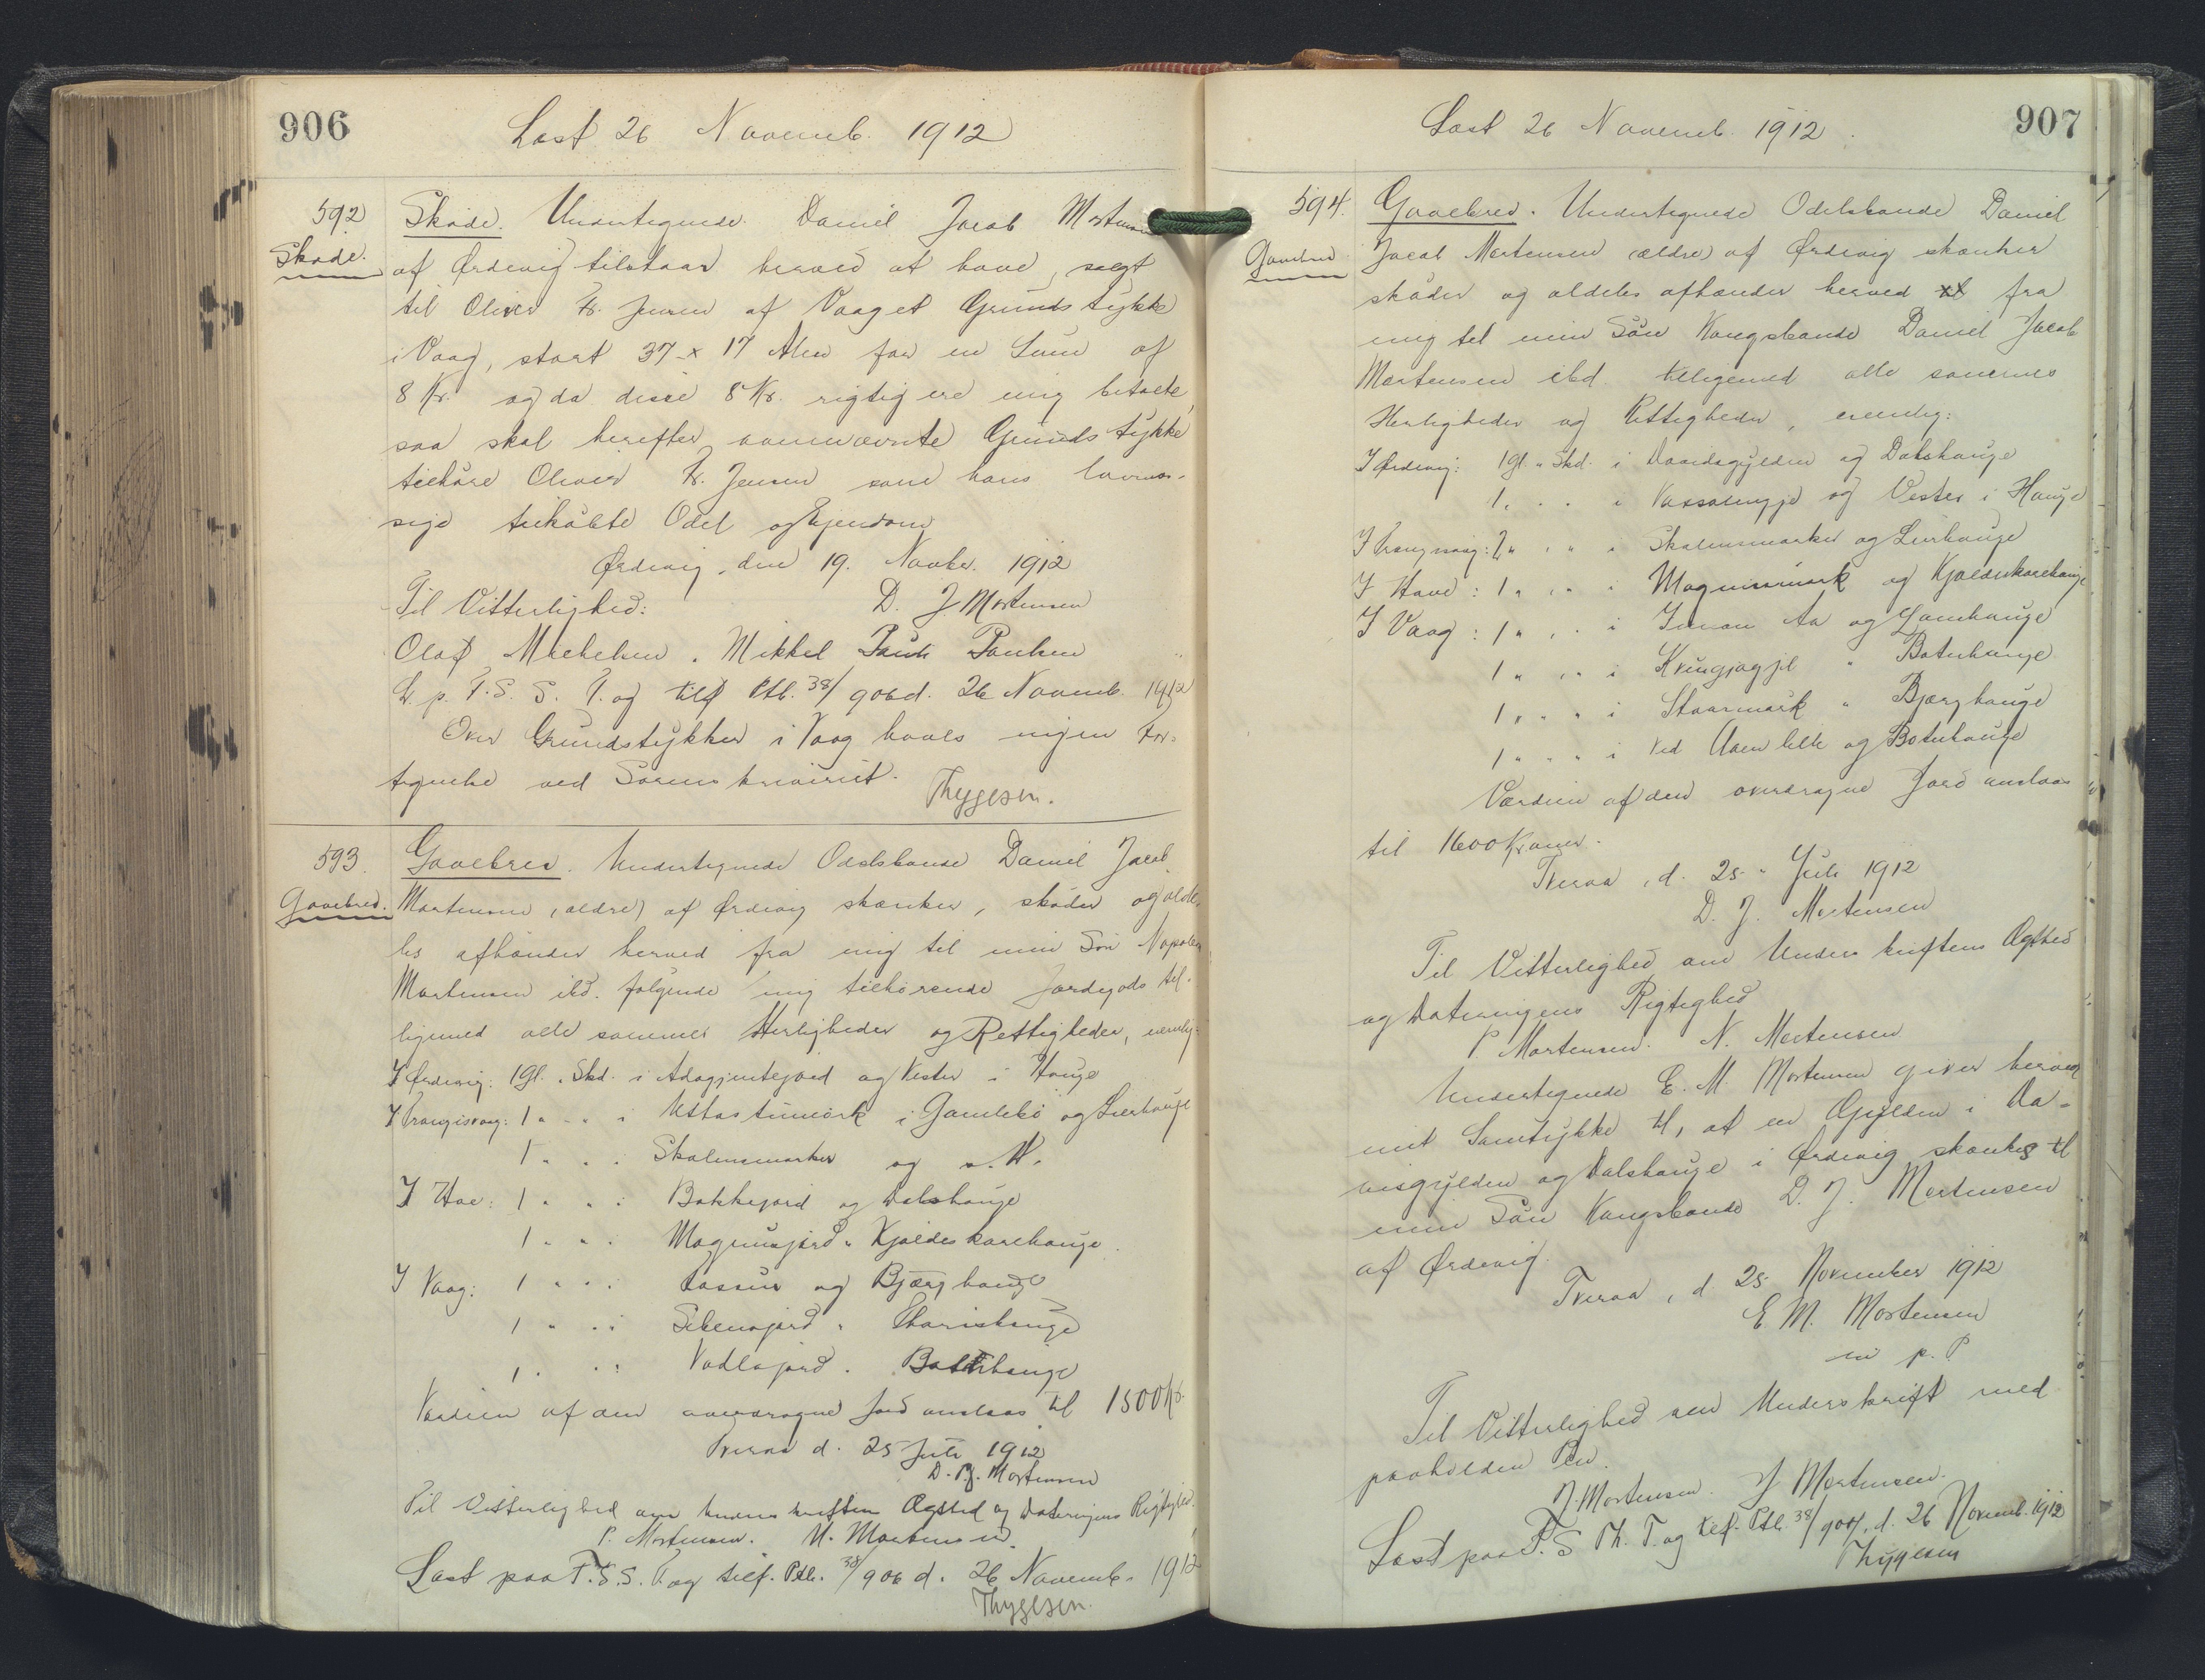 906
Læst 26 Novemb. 1912
592
Skøde.
Skøde. Undertegnede Daniel Jacob Mortensen
af Ørdevig tilstaar herved at have solgt
til Oliver Fr. Jensen af Vaag et Grundstykke
i Vaag, stort 37 x 17 Alen for en Sum af
8 Kr. og da disse 8 Kr. rigtig ere mig betalte,
saa skal herefter ovennævnte Grundstykke
tilhøre Oliver Fr. Jensen som hans lovmæs-
sige tilkøbte Odel og Ejendom
Ørdevig, den 19. Novbr. 1912
Til Vitterlighed: D. J. Mortensen
Olaf Michelsen. Mikkel Poulsen
L. p. F. S. S. T. og tilf Ptb. 38/906 d. 26 Novemb. 1912
Over Grundstykker i Vaag haves ingen For-
tegnelse ved Sorenskriveriet.
Thygesen.
593.
Gavebrev.
Gavebrev. Undertegnede Odelsbonde Daniel Jacob
Mortensen (ældre) af Ørdevig skænker, skøder og alde-
les afhænder herved fra mig til min Søn Napoleon
Mortensen ibd. følgende mig tilhørende Jordegods til-
ligemed alle sammes Herligheder og Rettigheder, nemlig:
I Ørdevig: 1 Gl. " Skd. i Adagjentejord og Vester i Hauge
I Trangisvaag: 1 " " " i Uttastumørk i Gamlebø og Lierhauge
1 " " " Skalmsmarker og s. H.
I Hove: 1 " " " Bakkejord og Dalshauge
1 " " " Magnusjord " Kjældeskorehauge
I Vaag: 1 " " " Lassur og Bjærghauge
1 " " i Sibenajord " Thorishauge
1 " " " Vadlajord " Botnhauge
Værdien af den overdragne Jord anslaas til 1500 Kr.
Tveraa d. 25 Juli 1912
D. J. Mortensen
Til Vitterlighed om Underskriftens Ægthed og Dateringens Rigtighed.
P. Mortensen. M. Mortensen.
Læst paa F. S. S. T. og tilf. Ptb. 38/906 d. 26 Novemb. 1912
Thygesen.
907
Læst 26 Novemb. 1912.
594.
Gavebrev
Gavebrev. Undertegnede Odelsbonde Daniel
Jacob Mortensen (ældre) af Ørdevig skænker
skøder og aldeles afhænder herved fra
mig til min Søn Kongsbonde Daniel Jacob
Mortensen ibd. tilligemed alle sammes
Herligheder og Rettigheder, nemlig:
I Ørdevig: 1 Gl. " Skd. i Davidsgylden og Dalshauge
1 " " " i og Vester i Hauge
I Trangisvaag: 2 " " " " Skalmsmarker og Lierhauge
I Hove: 1 " " " " Magnusmørk og Kjældeskorehauge
I Vaag: 1 " " " i Innan Aa og Lomhauge
1 " " " i " Botnhauge
1 " " " i Staarmørk " Bjærghauge
1 " " " i Ved Aaen lille og Botnhauge
Værdien af den overdragne Jord anslaas
til 1600 Kroner.
Tveraa, d. 25 " Juli 1912
D. J. Mortensen
Til Vitterlighed om Underskriftens Ægthed
og Dateringens Rigtighed
P. Mortensen. N. Mortensen
Undertegnede E. M. Mortensen giver herved
mit Samtykke til, at en Gylden i Da-
visgylden og Dalshauge i Ørdevig skænkes til
min Søn Kongsbonde D. J. Mortensen
af Ørdevig.
Tveraa, d. 25 November 1912
E. M. Mortensen
m p. P
Til Vitterlighed om Underskrift med
paaholden Pen.
J. Mortensen. J Mortensen.
Læst paa F. S Th. T. og tilf. Ptb. 38/907, d. 26 Novemb. 1912
Thygesen